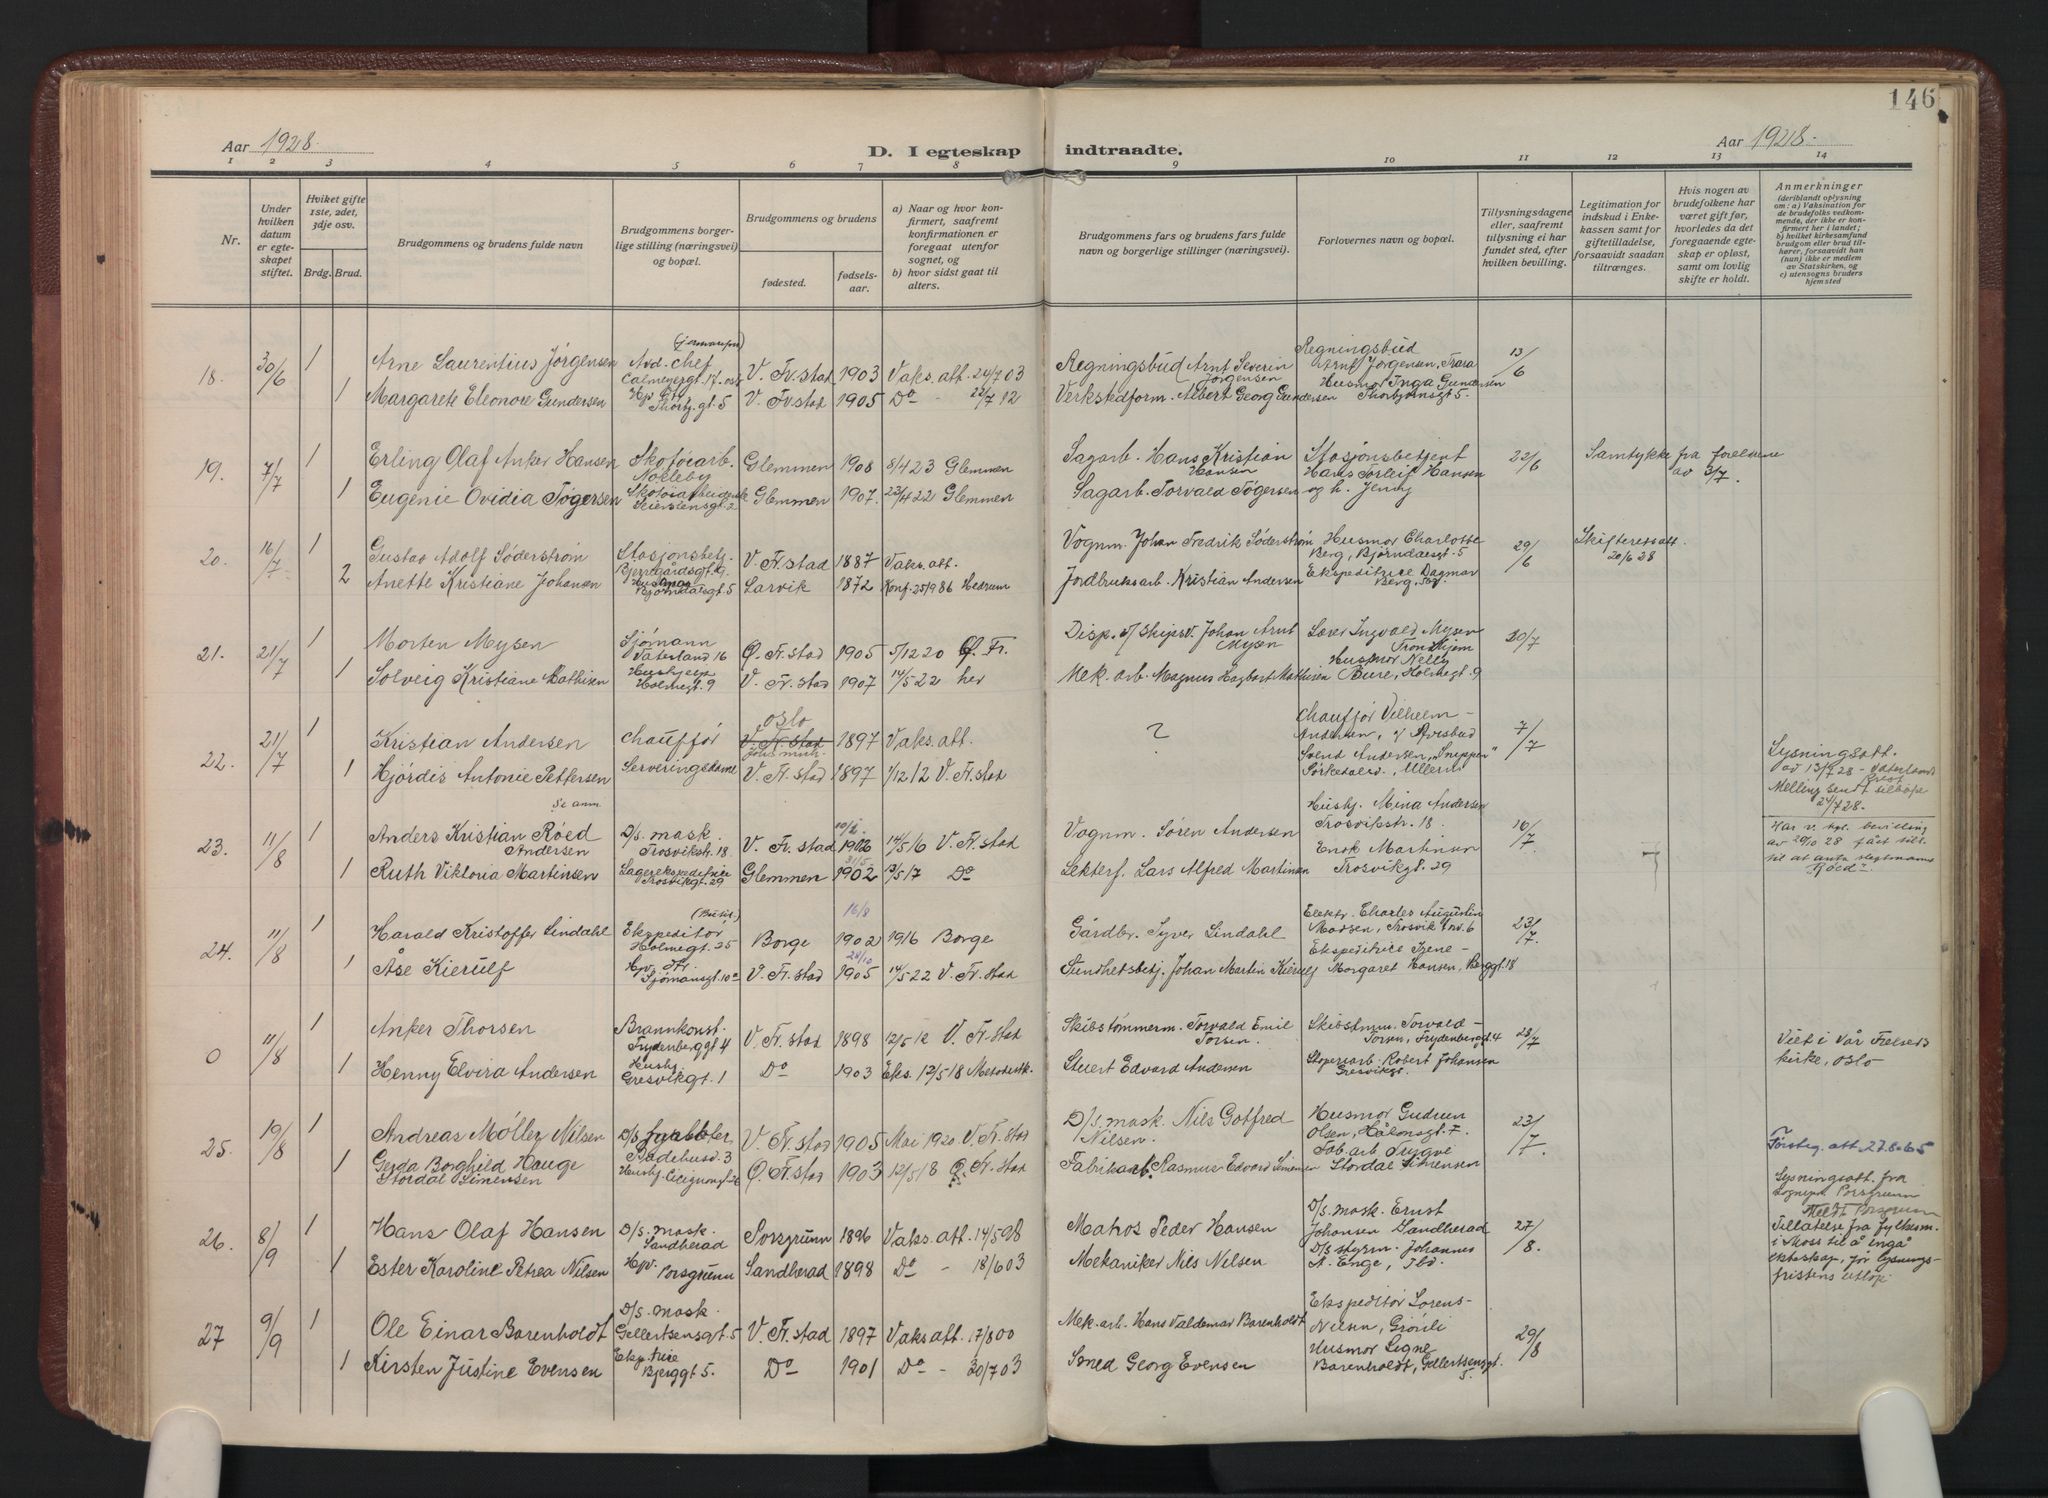 146
Aar 1928.
D. I egteskap indtraadte.
Aar 1928.
1 2 3 4 5 6 7 8 9 10 11 12 13 14
Nr.
Under hvilken datum er egteskapet stiftet.
Hviket gifte 1ste, 2det, 3dje osv.
Brdg. Brud.
Brudgommens og brudens fulde navn
Brudgommens borgerlige stilling (næringsvei) og bopæl.
Brudgommens og brudens
fødested.
fødselsaar.
a) Naar og hvor konfirmert, saafremt konfirmationen er foregaat utenfor sognet, og
b) hvor sidst gaat til alters.
Brudgommens fars og brudens fars fulde navn og borgerlige stillinger (næringsvei).
Forlovernes navn og bopæl.
Tillysningsdagene eller, saafremt tillysning ei har fundet sted, efter hvilken bevilling.
Legitimation for indskud i Enkekassen samt for giftetilladelse, forsaavidt saadan tiltrænges.
Hvis nogen av brudefolkene har været gift før, hvorledes da det foregaaende egteskap er opløst, samt om lovlig skifte er holdt.
Anmerkninger (deriblandt oplysning om: a) Vaksination for de brudefolks vedkommende, der ikke er konfirmert her i landet; b) hvilket kirkesamfund brudgom eller brud tilhører, forsaavidt han (hun) ikke er medlem av Statskirken, og c) utensogns bruders hjemsted
18. 30/6 1 Arne Laurentius Jørgensen Avd. chef Calmeyergt. 17. V. Fr.stad 1903 Vaks. att. 24/7 03 Regningsbud Arnt Severin Jørgensen Regningsbud Arnt Jørgensen, Trara 13/6
1 Margarete Eleonore Gundersen Thorbj.gt. 5 V. Fr.stad 1905 Do - 22/7 12 Verkstedform. Albert Georg Gundersen Husmor Inga Gundersen Thorbjørnsgt. 5.
19. 7/7 1 Erling Olaf Anker Hansen Skotøiarb. Nøkleby Glemmen 1908 8/4 23 Glemmen Sagarb. Hans Kristian Hansen Stasjonsbetjent Hans Torleif Hansen 22/6 Samtykke fra foreldrene av 3/7.
1 Eugenie Ovidia Tøgersen Glemmen 1907. 23/4 22 Glemmen Sagarb. Torvald Tøgersen og h. Jenny
20. 16/7 1 Gustav Adolf Söderström Stasjonsbetj. Bjerregårdsgt. 19. V. Fr.stad 1887 Vaks. att. Vognm. Johan Fredrik Söderström Husmor Charlotte Berg, Bjørndalsgt. 5 29/6 Skifteressatt. 20/6 28
2 Anette Kristiane Johansen Bjørndalsgt. 5 Larvik 1872 Konf. 25/9 86 Hedrum Jordbruksarb. Kristian Andersen Ekspeditrice Dagmar Berg,
21. 21/7 1 Morten Mysen Sjømann Vaterland 16 Ø. Fr.stad 1905 5/12 20 Ø. Fr. Disp. Johan Arnt Mysen Lærer Ingvald Mysen Trondhjem 20/7
1 Solveig Kristiane Mathisen Hushjelp Holmegt. 9 V. Fr.stad 1907 14/5 22 her Mek. arb. Magnus Hagbart Mathisen Husmor Nelly Bure, Holmegt. 9
22. 21/7 1 Kristian Andersen chauffør Oslo V. Fr.stad 1897 Vaks. att. ? Chauffør Vilhelm Andersen, 7/7
1 Hjørdis Antonie Pettersen Serveringsdame V. Fr.stad 1897 1/12 12 V. Fr.stad Svend Andersen, "Sneppen" Sørkedalsv., Ullern Lysningsatt. av 13/7 28 - Melling sendt tilbake 24/7 28.
23. 11/8 1 Anders Kristian Røed Andersen Se anm. D/s. mask. Trosvikstr. 18 V. Fr.stad 10/2 1902 14/5 16 V. Fr.stad Vognm. Søren Andersen Hushj. Mina Andersen Trosvikstr. 18. 10/7 Har v. kgl. bevilling av 29/10 28 fått till. til at anta slegtsnavnet "Røed"
1 Ruth Viktoria Martinsen Lagerekspeditrice Trosvikgt. 29 Glemmen 31/5 1902 13/5 17 Do Lekterf. Lars Alfred Martinsen Enok Martinsen Trosvikgt. 29
24. 11/8 1 Harald Kristoffer Lindahl Ekspeditør Holmegt. 25 Borge 16/8 1902 1916 Borge Gårdbr. Syver Lindahl Elektr. Charles Augustin Madsen, Trosvik 23/7.
1 Åse Kierulf V. Fr.stad 28/10 1905 14/5 22 V. Fr.stad Sundhetsbetj. Johan Martin Kierulf Ekspeditrice Irene Margaret Hansen, Berggt. 18
0 11/8 1 Anker Thorsen Brannkonst. Frydenberggt 4 V. Fr.stad 1898 12/5 12 V. Fr.stad Skibstømmerm. Torvald Emil Torsen. Skibstmm. Torvald Torsen, Frydenberggt. 4 28/7 Viet i Vår Frelsers kirke, Oslo
1 Henny Elvira Andersen Hushj. Gresvikgt. 1 Do 1903 Eks. 12/5 18 Metodistk. Stuert Edvard Andersen Støperiarb. Robert Johansen Gresvikgt.
25. 19/8 1 Andreas Möller Nilsen V. Fr.stad 1905 Mai 1920 V. Fr.stad D/s. mask. Nils Gotfred Nilsen. Husmor Gudrun Olsen, Håkonsgt. 7. 23/7
1 Gerda Borghild Hauge Stordal Simensen Ø. Fr.stad 1903 12/5 18 Ø. Fr.stad Fabrikarb. Rasmus Edvard Simensen Fab. arb. Trygve Stordal Simensen Førsteg. att. 27.8.65
26. 8/9 1 Hans Olaf Hansen D/s. mask. Sandherad Porsgrunn 1896 Vaks. att. 14/5 98 Matros Peder Hansen D/s. mask. Ernst Johansen Sandherad 27/8. Lysningsatt. fra sognepr. Porsgrunn
1 Ester Karoline Petrea Nilsen Hpv. Porsgrunn Sandherad 1898 Do - 18/6 03 Mekaniker Nils Nilsen D/s styrm. Johannes A. Enge, Meldt Porsgrunn Tillatelse fra fylkesm. i Moss til å ingå ekteskap, før lysningsfristens utløp
27 9/9 1 Ole Einar Barenholdt D/s. mask. Gellertsensgt 5 V. Fr.stad 1897 Vaks att. 17/8 00 Mek. arb. Hans Valdemar Barenholdt Ekspeditør Lorens Nilsen, Grønli 29/8
1 Kirsten Justine Evensen Eksp.trice Bjerggt 5. Do 1901 Do - 20/7 03 Smed Georg Evensen Husmor Signe Barenholdt, Gellertsensgt. 5